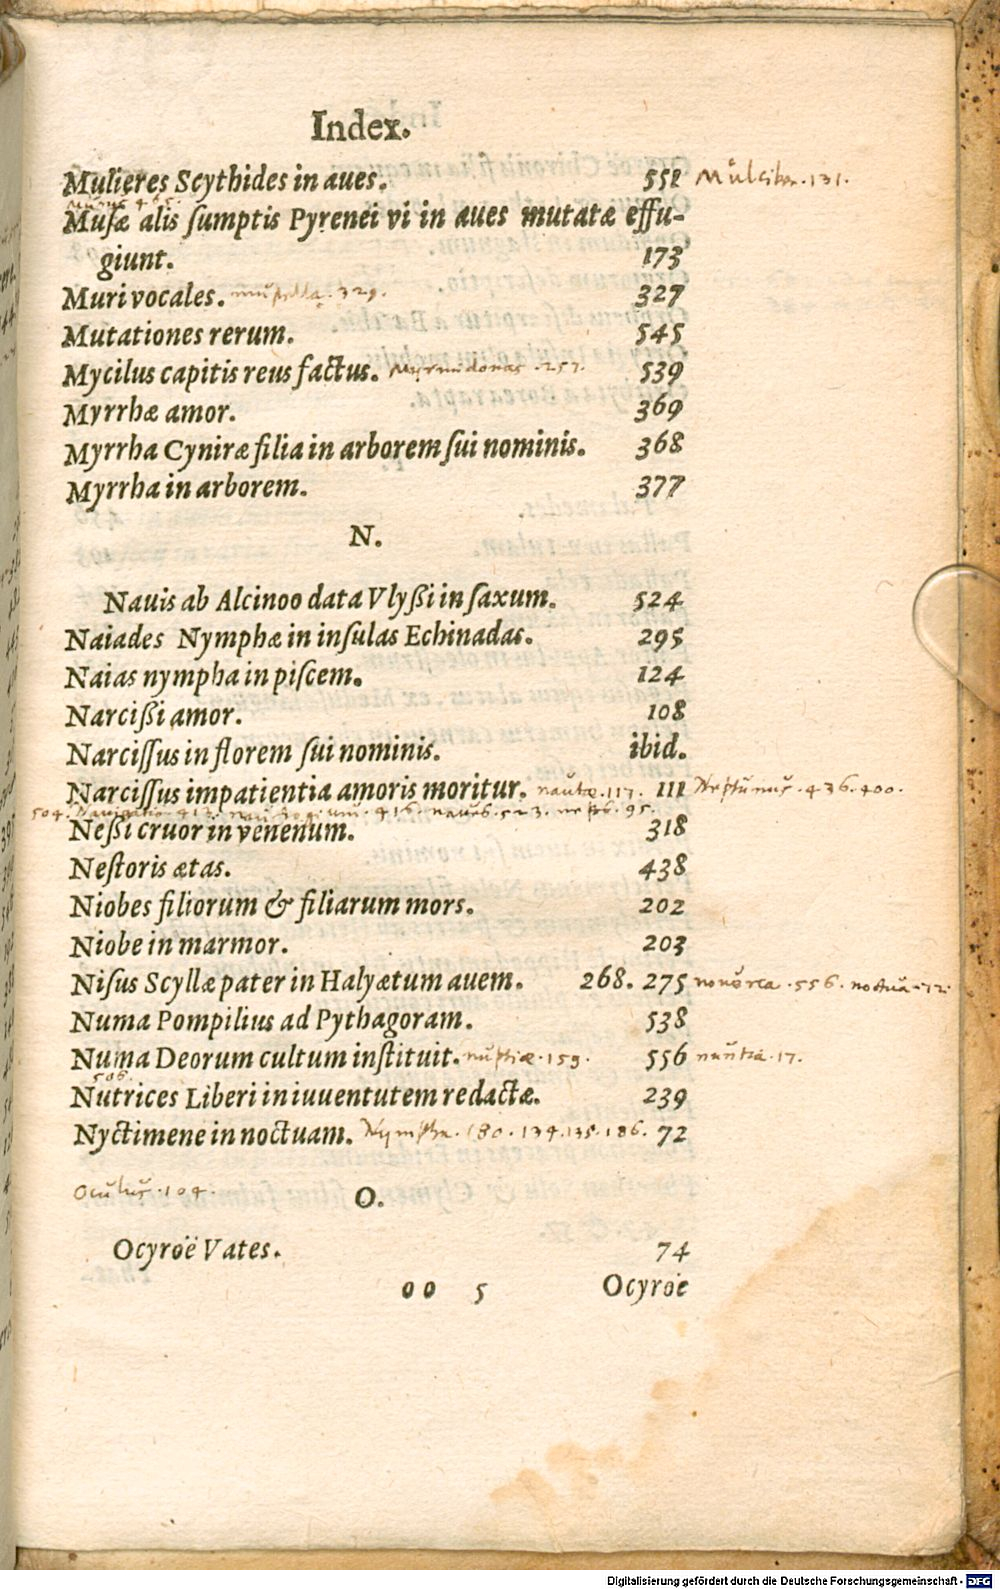 Index.
Mulieres Scythides in aues. 552 Mulciber. 131.
Muſæ alis ſumptis Pyreneï vi in aues mutatæ effu-
giunt. 173
Muri vocales. 327
Mutationes rerum. 545
Mycilus capitis reus factus. Myrmidonas. 257. 539
Myrrhæ amor. 369
Myrrha Cyniræ filia in arborem ſui nominis. 368
Myrrha in arborem. 377
N.
Nauis ab Alcinoo data Vlyßi in ſaxum. 524
Naiades Nymphæ in inſulas Echinadas. 295
Naias nympha in piſcem. 124
Narcißi amor. 108
Narciſſus in florem ſui nominis. ibid.
Narciſſus impatientia amoris moritur. nautæ. 117. 111 Neptunus. 436. 400.
504. Navigatio. 413. naufragium. 416. 523. 95.
Neßi cruor in venenum. 318
Neſtoris ætas. 438
Niobes filiorum & filiarum mors. 202
Niobe in marmor. 203
Niſus Scyllæ pater in Halyætum auem. 268. 275 noverca. 556. noctua. 72.
Numa Pompilius ad Pythagoram. 538
Numa Deorum cultum inſtituit. nuptiæ. 159. 556 nuntia. 17.
506.
Nutrices Liberi in iuuentutem redactæ. 239
Nyctimene in noctuam. Nympha. 180. 134. 135. 186. 72
Oculus. 104.
O.
Ocyroë Vates. 74
oo 5 Ocyroë
Digitalisierung gefördert durch die Deutsche Forschungsgemeinschaft - DFG